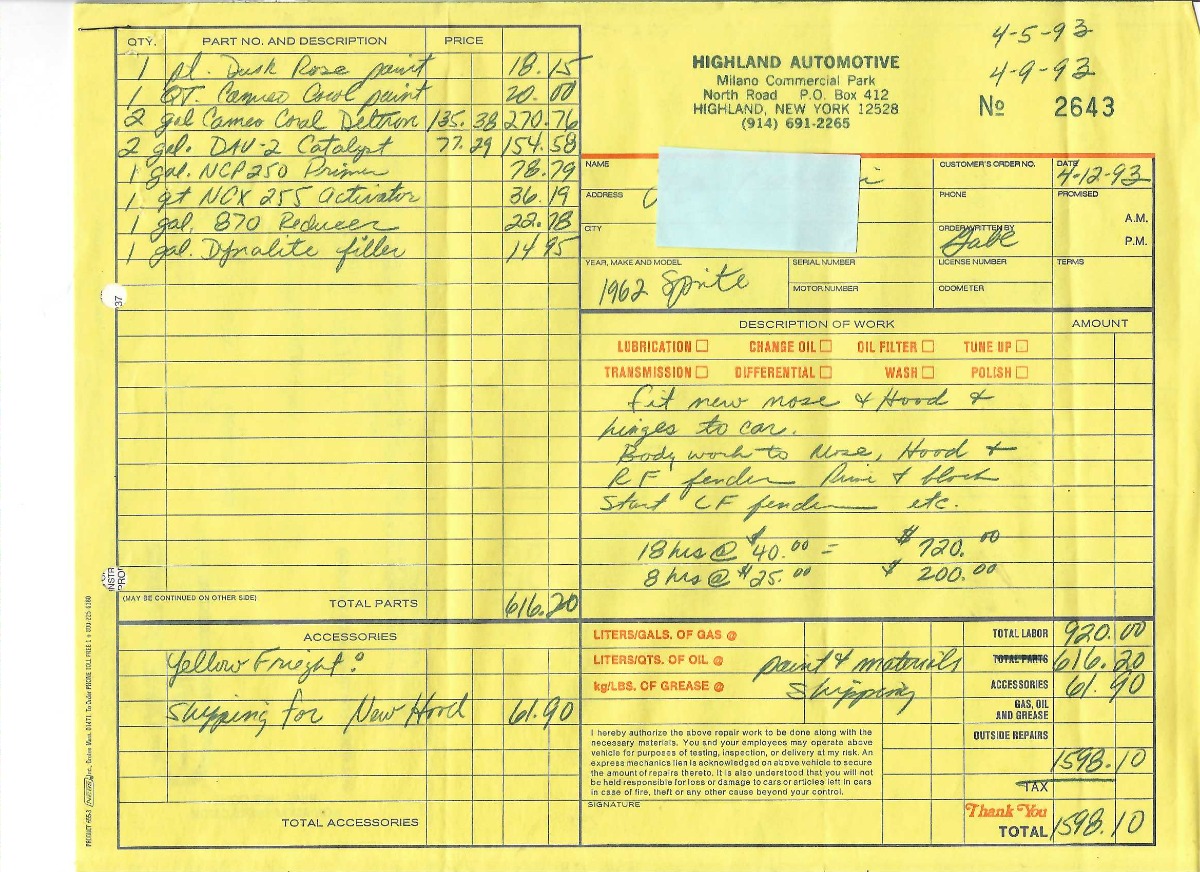 4-5-93
4-9-93
HIGHLAND AUTOMOTIVE
Milano Commercial Park
North Road P.O. Box 412
HIGHLAND, NEW YORK 12528
(914) 691-2265
No 2643
QTY. PART NO. AND DESCRIPTION PRICE
1 pt. Dusk Rose paint 18.15
1 QT. Cameo Coral paint 20.00
2 gal Cameo Coral Deltron 135.38 270.76
2 gal. DAU-2 Catalyst 77.29 154.58
1 gal. NCP 250 Primer 78.79
1 qt NCX 255 Activator 36.19
1 gal. 870 Reducer 22.78
1 gal. Dynalite filler 14.95
37
INSTR
PRO
(MAY BE CONTINUED ON OTHER SIDE) TOTAL PARTS 616.20
ACCESSORIES
Yellow Freight:
Shipping for New Hood 61.90
TOTAL ACCESSORIES
NAME CUSTOMER'S ORDER NO. DATE 4-12-93
ADDRESS PHONE PROMISED
A.M.
CITY ORDER WRITTEN BY Gabe P.M.
YEAR, MAKE AND MODEL SERIAL NUMBER LICENSE NUMBER TERMS
1962 Sprite MOTOR NUMBER ODOMETER
DESCRIPTION OF WORK AMOUNT
LUBRICATION CHANGE OIL OIL FILTER TUNE UP
TRANSMISSION DIFFERENTIAL WASH POLISH
Fit new nose & Hood &
hinges to car.
Body work to Nose, Hood &
RF fender Prime & block
Start LF fender etc.
18 hrs @ $40.00 = $720.00
8 hrs @ $25.00 $200.00
LITERS/GALS. OF GAS @ TOTAL LABOR 920.00
LITERS/QTS. OF OIL @ paint & materials TOTAL PARTS 616.20
kg/LBS. OF GREASE @ shipping ACCESSORIES 61.90
GAS, OIL
AND GREASE
OUTSIDE REPAIRS
1598.10
TAX
I hereby authorize the above repair work to be done along with the
necessary materials. You and your employees may operate above
vehicle for purposes of testing, inspection, or delivery at my risk. An
express mechanics lien is acknowledged on above vehicle to secure
the amount of repairs thereto. It is also understood that you will not
be held responsible for loss or damage to cars or articles left in cars
in case of fire, theft or any other cause beyond your control.
SIGNATURE
Thank You
TOTAL 1598.10